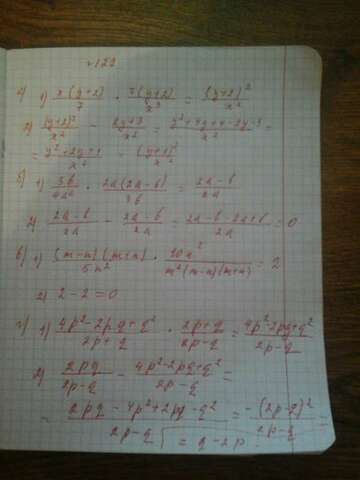 № 122
а) 1) x(y+2)/7 · 7(y+2)/x³ = (y+2)²/x²
2) (y+2)²/x² - 2y+3/x² = y²+4y+4-2y-3/x² =
= y²+2y+1/x² = (y+1)²/x²
б) 1) 3b/4a² · 2a(2a-b)/3b = 2a-b/2a
2) 2a-b/2a - 2a-b/2a = 2a-b-2a+b/2a = 0
в) 1) (m-n)(m+n)/5n² · 10n²/m²(m-n)(m+n) = 2
2) 2-2=0
г) 1) 4p²-2pq+q²/2p+q · 2p+q/2p-q = 4p²-2pq+q²/2p-q
2) 2pq/2p-q - 4p²-2pq+q²/2p-q =
= 2pq-4p²+2pq-q²/2p-q = -(2p-q)²/2p-q =
= q-2p.